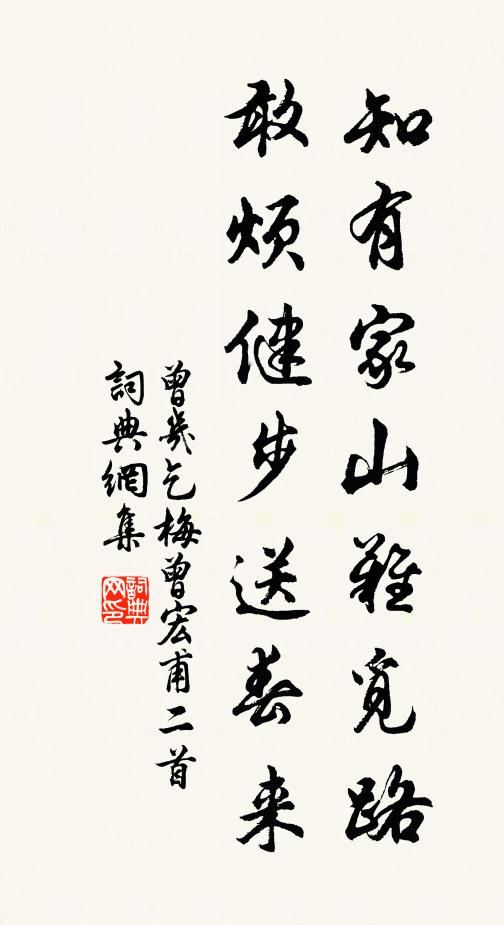 知有家山難覓路
敢煩健步送春来
曾幾乞梅曾宏甫二首
詞典網集
詞典网印